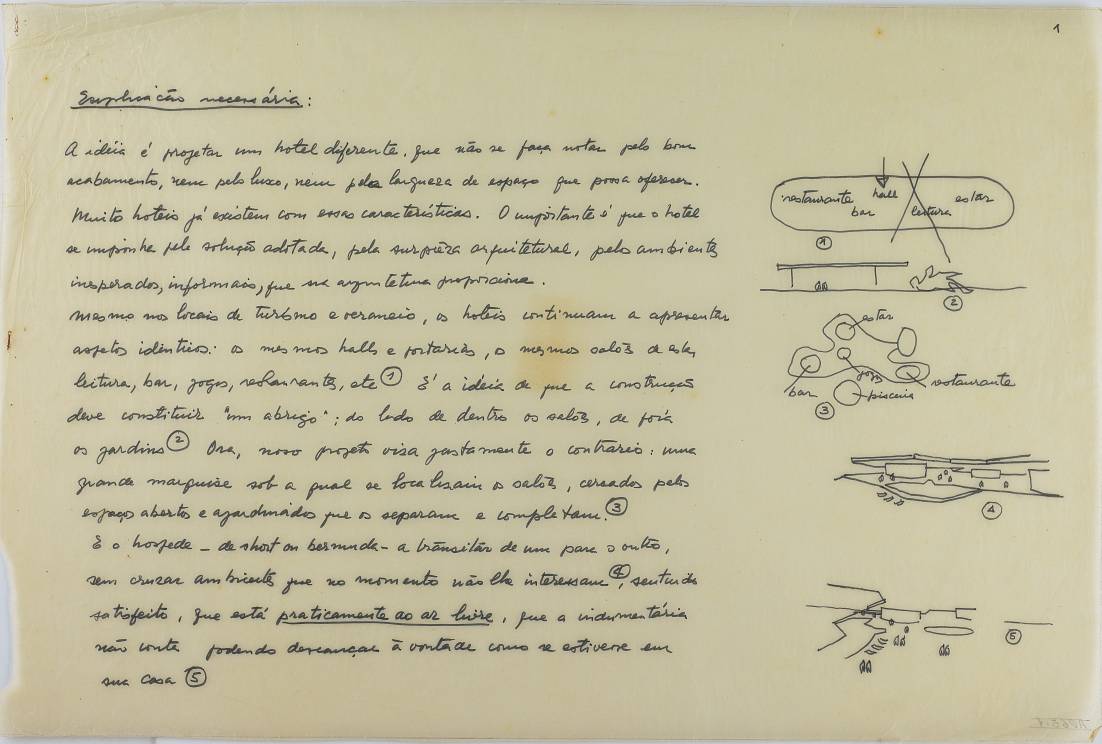 1
Explicação necessária:
A idéia é projetar um hotel diferente, que não se faça notar pelo bom
acabamento, nem pelo luxo, nem pela largueza de espaço que possa oferecer.
Muito hoteis já existem com essas características. O importante é que o hotel
se imponha pela solução adotada, pela surprêza arquitetural, pelos ambientes
inesperados, informais, que sua arquitetura proporcione.
Mesmo nos locais de turismo e veraneio, os hoteis continuam a apresentar
aspetos identicos: os mesmos halls e portarias, os mesmos salões de estar,
leitura, bar, jogos, restaurantes, etc ① É a idéia de que a construção
deve constituir "um abrigo"; do lado de dentro os salões, de fora
os jardins ② Ora, nosso projeto visa justamente o contrário: uma
grande marquise sob a qual se localisam os salões, cercados pelos
espaços abertos e ajardinados que os separam e completam. ③
E o hospede – de short ou bermuda – a transitar de um para o outro,
sem cruzar ambientes que no momento não lhe interessam ④, sentindo
satisfeito, que está praticamente ao ar livre, que a indumentária
não conta podendo descançar à vontade como se estivesse em
sua casa ⑤
restaurante hall estar
bar leitura
①
②
estar
jogos
bar piscina restaurante
③
④
⑤